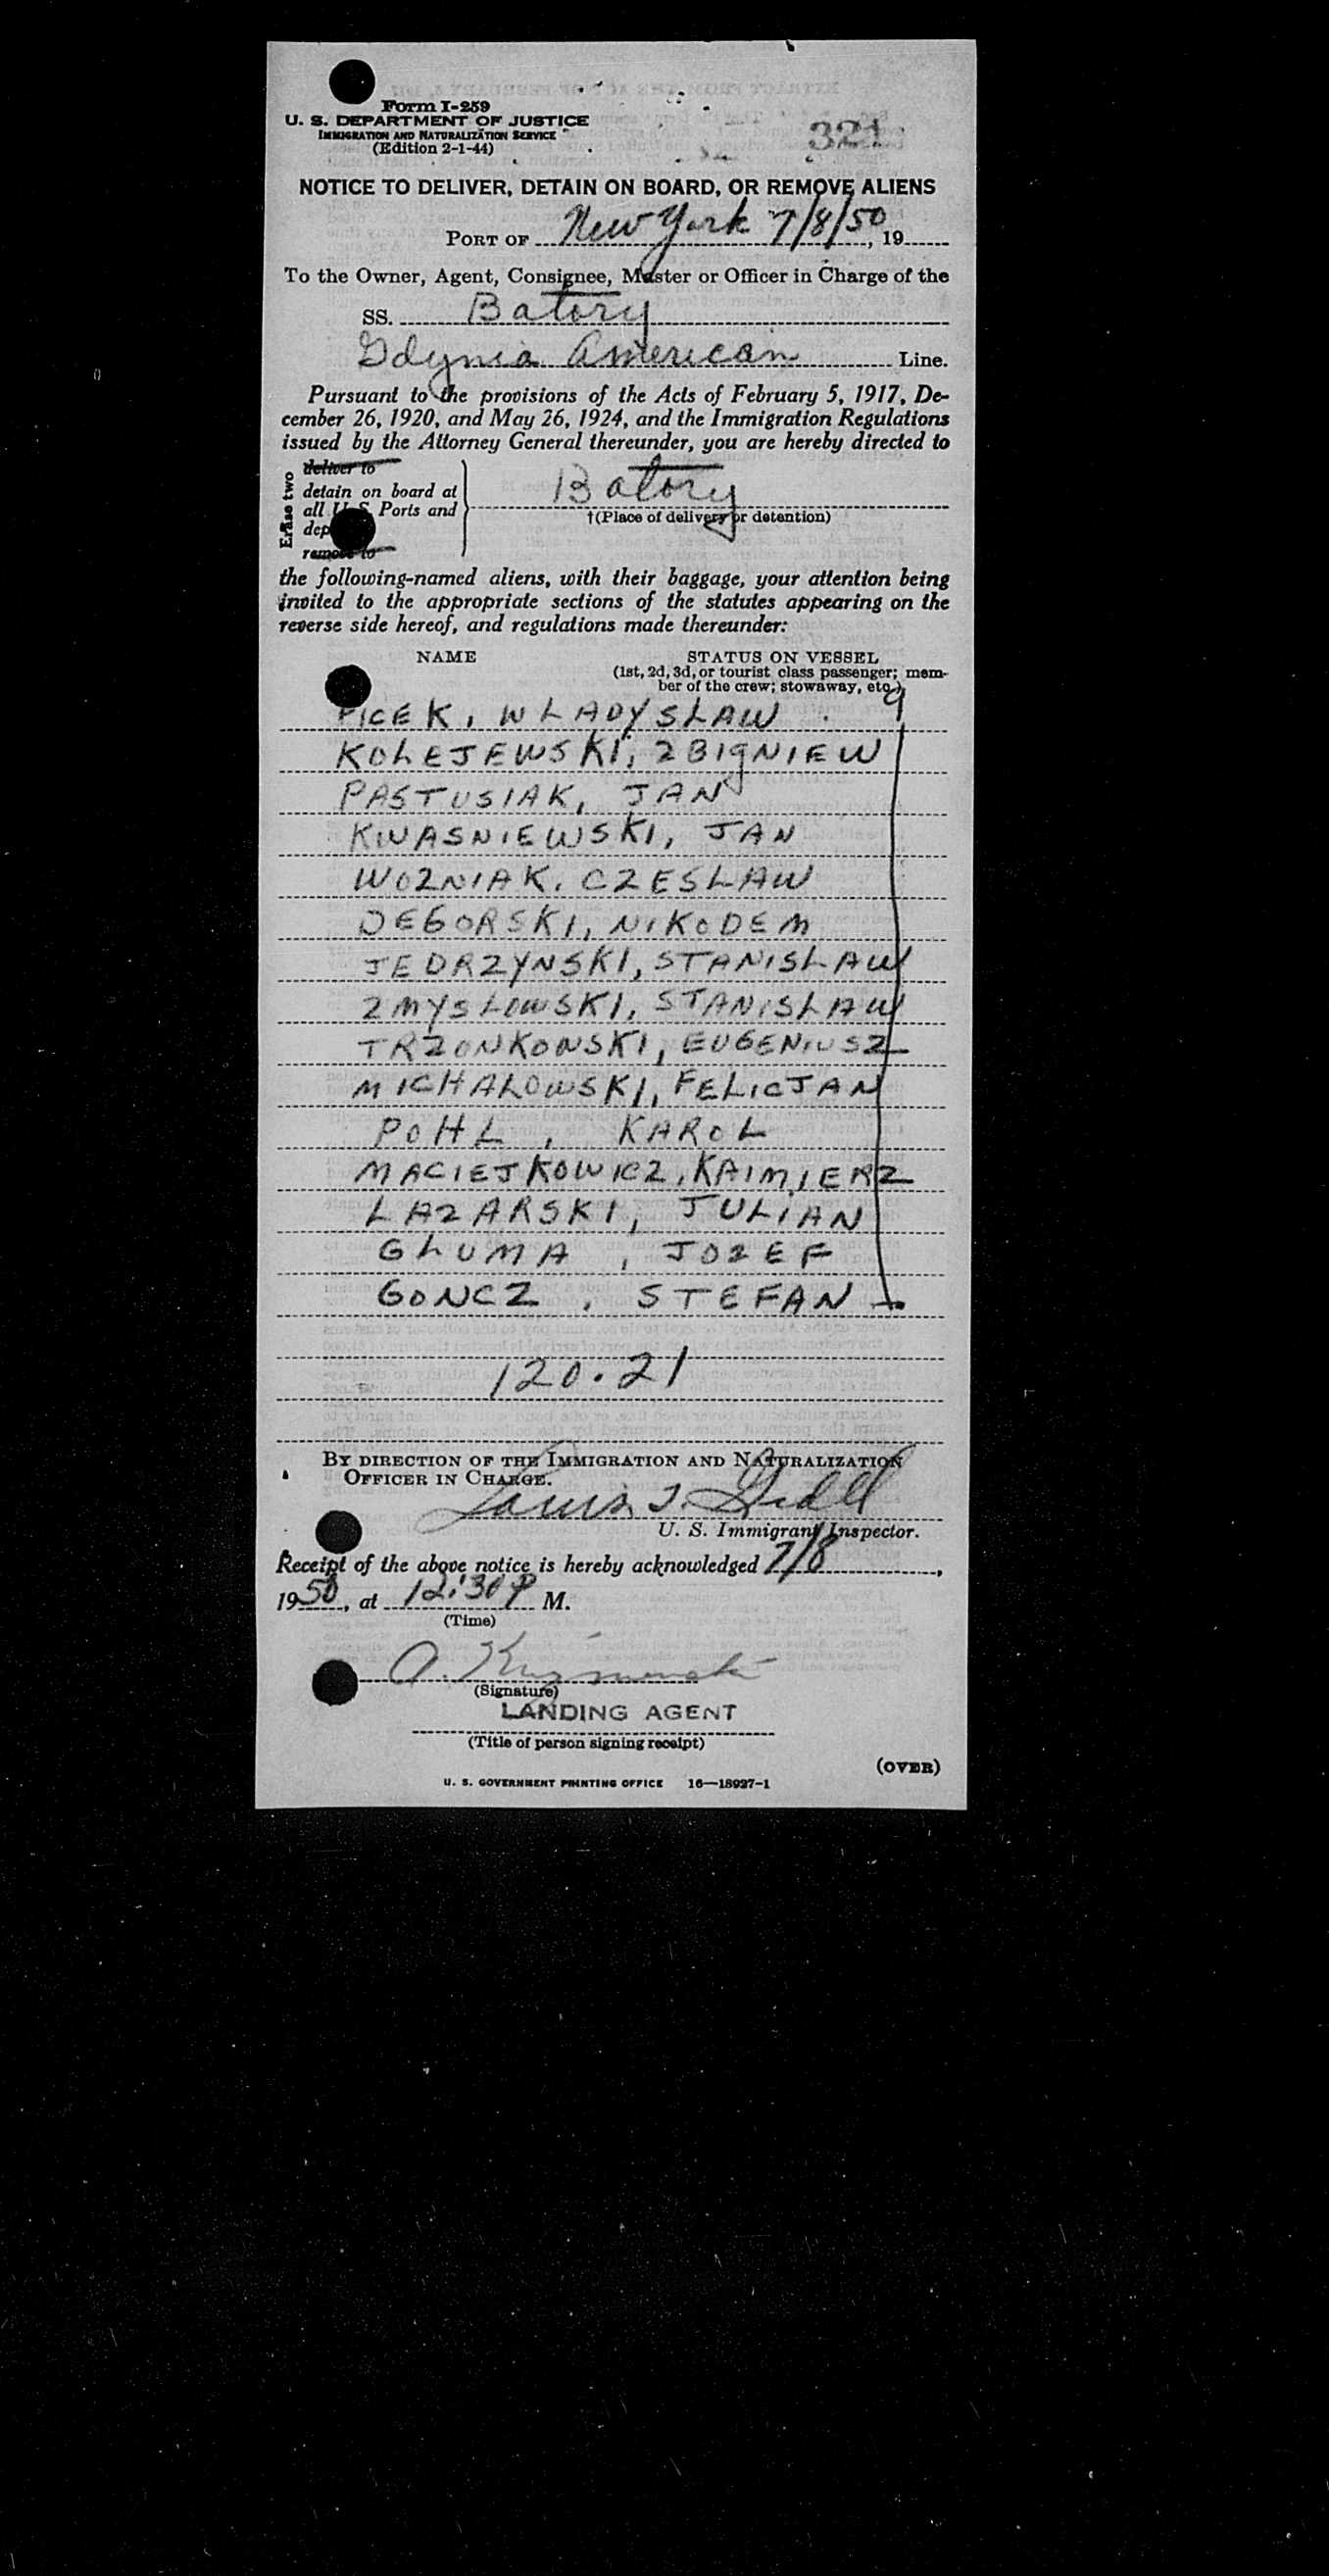 Form I-259
U. S. DEPARTMENT OF JUSTICE
IMMIGRATION AND NATURALIZATION SERVICE
(Edition 2-1-44)
321
NOTICE TO DELIVER, DETAIN ON BOARD, OR REMOVE ALIENS
PORT OF New York 7/8/50, 19
To the Owner, Agent, Consignee, Master or Officer in Charge of the
SS. Batory
Gdynia American Line.
Pursuant to the provisions of the Acts of February 5, 1917, De-
cember 26, 1920, and May 26, 1924, and the Immigration Regulations
issued by the Attorney General thereunder, you are hereby directed to
Erase two
deliver to
detain on board at
all U. S. Ports and
dep
remove to
Batory
†(Place of delivery or detention)
the following-named aliens, with their baggage, your attention being
invited to the appropriate sections of the statutes appearing on the
reverse side hereof, and regulations made thereunder:
NAME STATUS ON VESSEL
(1st, 2d, 3d, or tourist class passenger; mem-
ber of the crew; stowaway, etc.)
9
WLADYSLAW
KOLEJEWSKI, ZBIGNIEW
PASTUSIAK, JAN
KWASNIEWSKI, JAN
WOZNIAK, CZESLAW
DEGORSKI, NIKODEM
JEDRZYNSKI, STANISLAW
ZMYSLOWSKI, STANISLAW
TRZONKOWSKI, EUGENIUSZ
MICHALOWSKI, FELICJAN
POHL, KAROL
MACIEJKOWICZ, KAIMIERZ
LAZARSKI, JULIAN
GLUMA, JOZEF
GONCZ, STEFAN
120.21
BY DIRECTION OF THE IMMIGRATION AND NATURALIZATION
OFFICER IN CHARGE.
U. S. Immigrant Inspector.
Receipt of the above notice is hereby acknowledged 7/8,
1950, at 12:30 P M.
(Time)
A.
(Signature)
LANDING AGENT
(Title of person signing receipt)
(OVER)
U. S. GOVERNMENT PRINTING OFFICE 16—18927-1